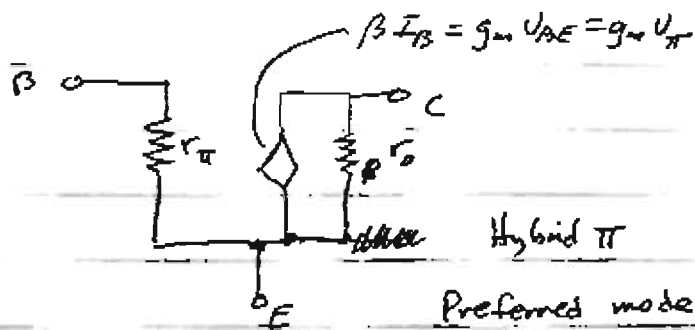 β I_B = g_m U_BE = g_m U_π
B
C
r_π
r_o
Hybrid π
E
Preferred mode